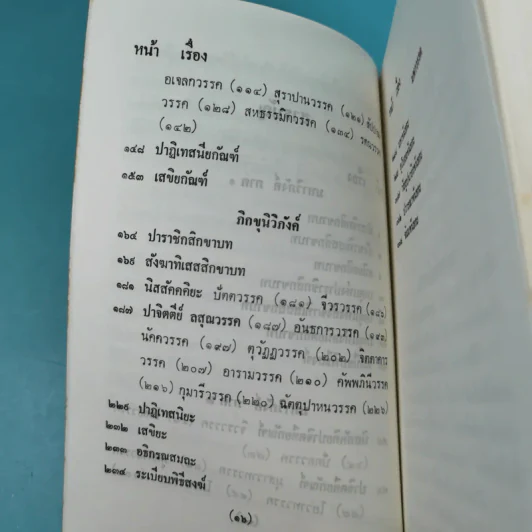 หน้า เรื่อง
อเจลกวรรค (๑๑๔) สุราปานวรรค (๑๒๑)
วรรค (๑๒๘) สหธรรมิกวรรค (๑๓๔)
(๑๔๒)
๑๔๘ ปาฏิเทสนียกัณฑ์
๑๕๓ เสขิยกัณฑ์
ภิกขุนิวิภังค์
๑๖๔ ปาราชิกสิกขาบท
๑๖๙ สังฆาทิเสสสิกขาบท
๑๘๑ นิสสัคคิยะ ปัตตวรรค (๑๘๑) จีวรวรรค (๑๘๖)
๑๘๗ ปาจิตตีย์ ลสุณวรรค (๑๘๗) อันธการวรรค
นัคควรรค (๑๙๗) ตุวัฏฏวรรค (๒๐๒) จิตตาคาร
วรรค (๒๐๗) อารามวรรค (๒๑๐) คัพพภินีวรรค
(๒๑๖) กุมารีวรรค (๒๒๐) ฉัตตุปาหนวรรค (๒๒๖)
๒๒๙ ปาฏิเทสนิยะ
๒๓๒ เสขิยะ
๒๓๓ อธิกรณสมถะ
๒๓๔ ระเบียบพิธีสงฆ์
(๑๖)